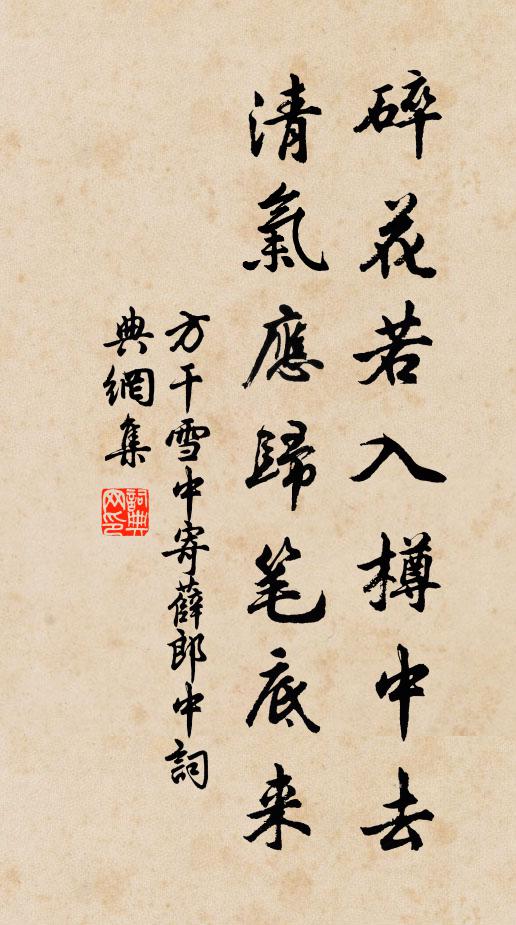 碎花若入樽中去
清氣應歸笔底来
方干雪中寄薛郎中詞
典網集
詞典网印